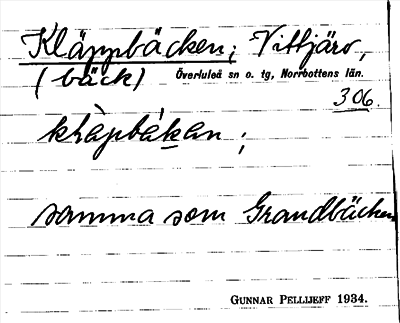 Kläppbäcken; Vittjärv,
(bäck) Överluleå sn o. tg, Norrbottens län.
306.
klàpbákan;
samma som Grandbäcken
GUNNAR PELLIJEFF 1934.